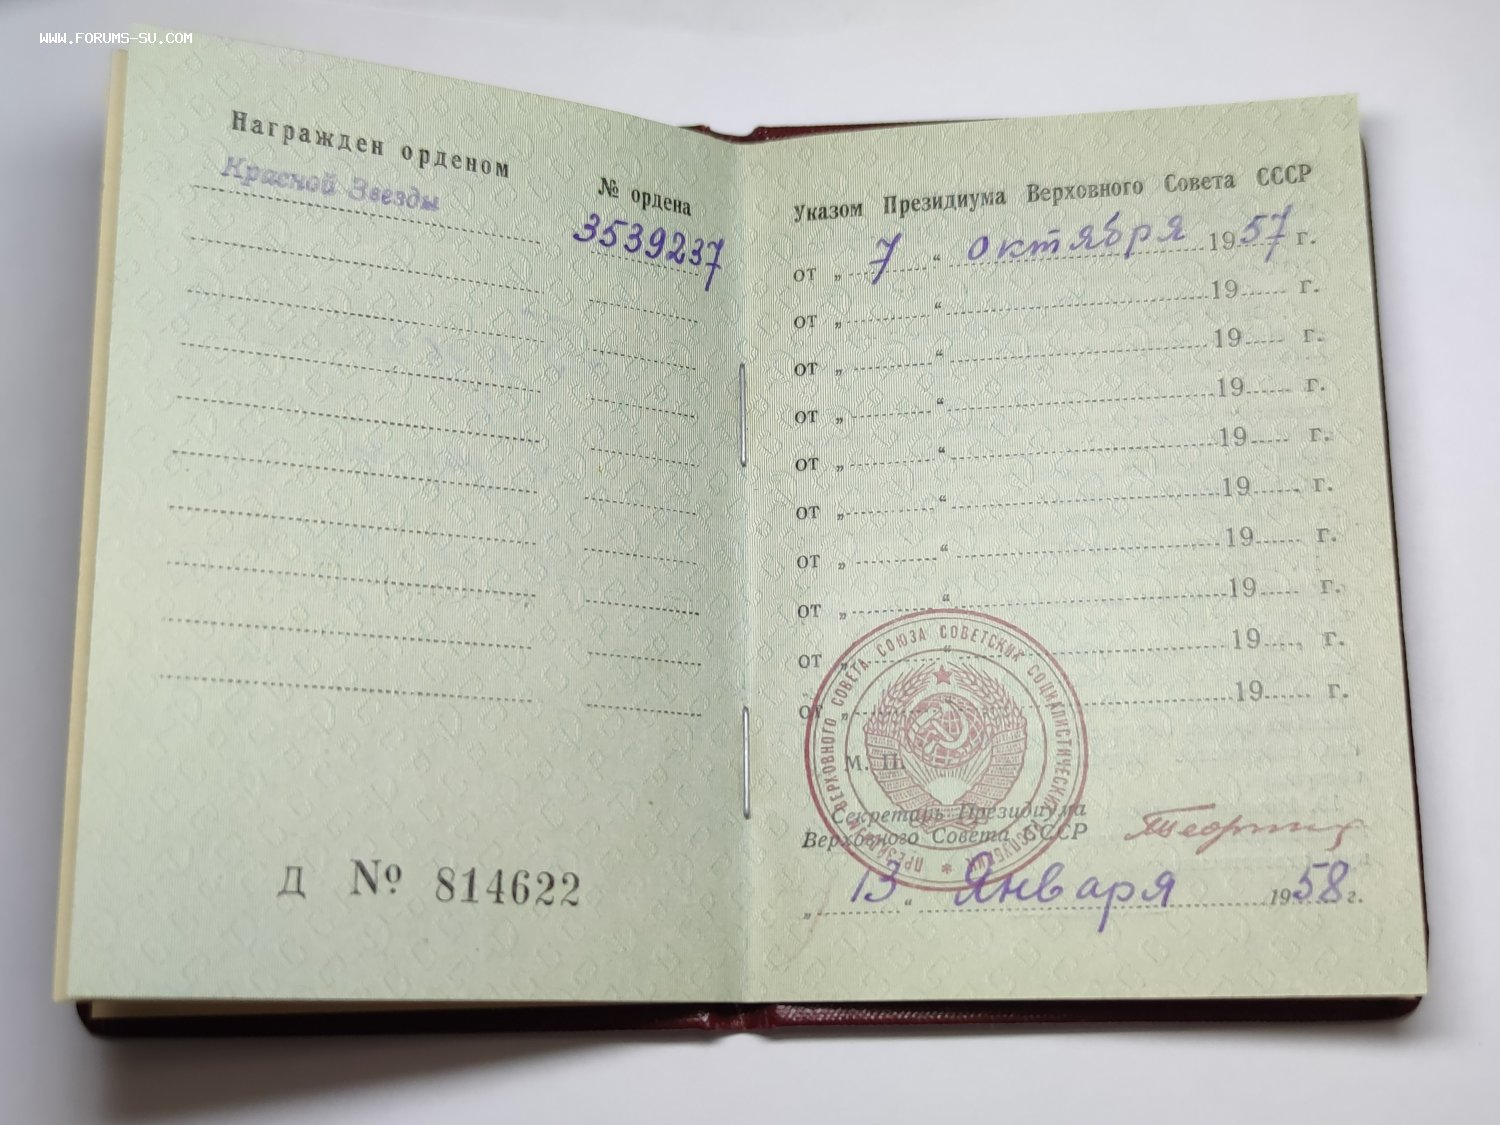 WWW.FORUMS-SU.COM
Награжден орденом
№ ордена
Красной Звезды
3539237
Д № 814622
Указом Президиума Верховного Совета СССР
от „ 7 “ октября 1957 г.
от „ “ 19 г.
от „ “ 19 г.
от „ “ 19 г.
от „ “ 19 г.
от „ “ 19 г.
от „ “ 19 г.
от „ “ 19 г.
от „ “ 19 г.
от „ “ 19 г.
ПРЕЗИДИУМ ВЕРХОВНОГО СОВЕТА СОЮЗА СОВЕТСКИХ СОЦИАЛИСТИЧЕСКИХ РЕСПУБЛИК
М. П.
Секретарь Президиума
Верховного Совета СССР
„ 13 “ Января 1958 г.